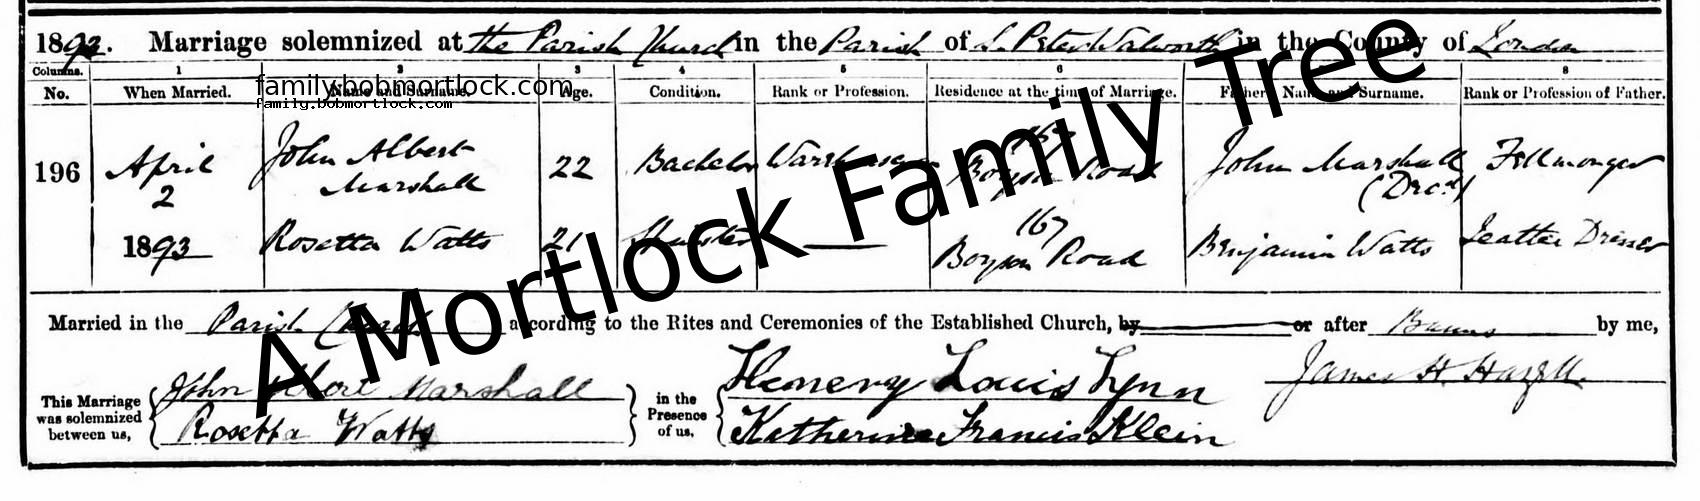 1893. Marriage solemnized at the Parish Church in the Parish of St. Peter Walworth in the County of London
Columns. 1 2 3 4 5 6 7 8
No. When Married. Name and Surname. Age. Condition. Rank or Profession. Residence at the time of Marriage. Father's Name and Surname. Rank or Profession of Father.
family.bobmortlock.com
family.bobmortlock.com
196 April 2 1893
John Albert Marshall 22 Bachelor Warehouseman 167 Boyson Road John Marshall (Decd) Fellmonger
Rosetta Watts 21 Spinster 167 Boyson Road Benjamin Watts Leather Dresser
Married in the Parish Church according to the Rites and Ceremonies of the Established Church, by or after Banns by me,
James H. Hazell
This Marriage was solemnized between us, John Albert Marshall
Rosetta Watts
in the Presence of us, Henery Louis Lynn
Katherine Francis Klein
A Mortlock Family Tree